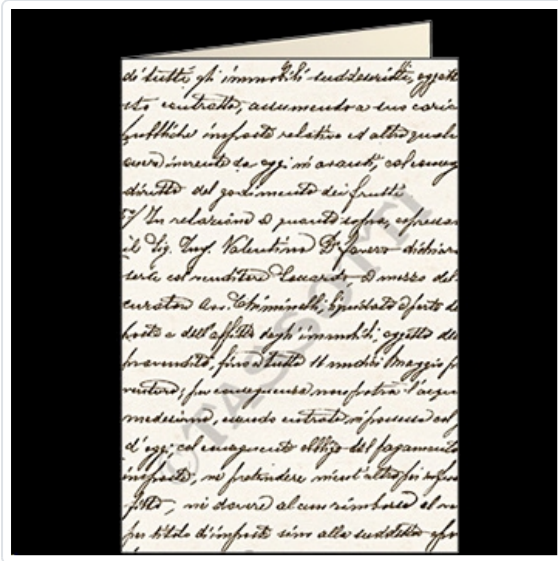 di tutti gli immobili suddescritti, oggett
sto contratto, assumendo a suo caric
pubbliche imposte relative ed altro quals
onere inerente da oggi in avanti, col conseg
diritto del godimento dei frutti
5°/ In relazione a quanto sopra, espressam
il Sig. Ing. Valentino Dr. Favero dichiara
serte col venditore Leonardo a mezzo del
curatore Avv. Chiminelli, liquidato a ferto de
poste e dell'affitto degli immobili, oggetto della
provendita, fino a tutto 11 undici Maggio p
venturo; per conseguenza non potrà l'acqui
medesimo, quando entrato in possesso col
d'oggi, col conseguente obbligo del pagamento
imposte, nè pretendere nient'altro per
fitto, nè dovere alcun rimborso al ve
per titolo di imposte sino alla suddetta epo
©TASSOTTI